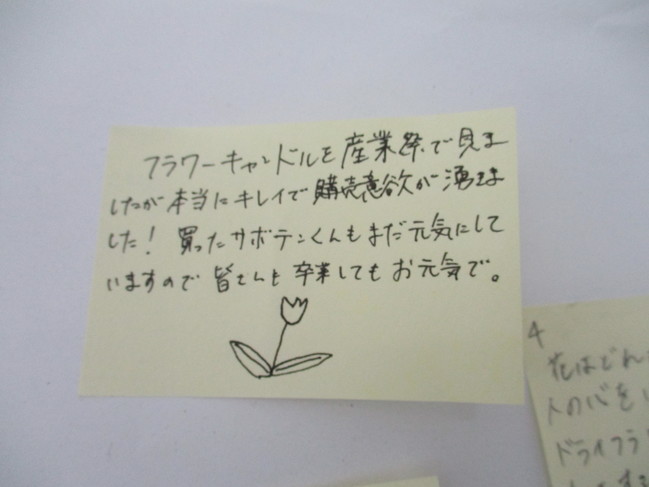 フラワーキャンドルを産業祭で見ま
したが本当にキレイで購売意欲が湧きま
した！買ったサボテンくんもまだ元気にして
いますので皆さんも卒業してもお元気で。
4
花はどれ
人の心を
ドライフラ